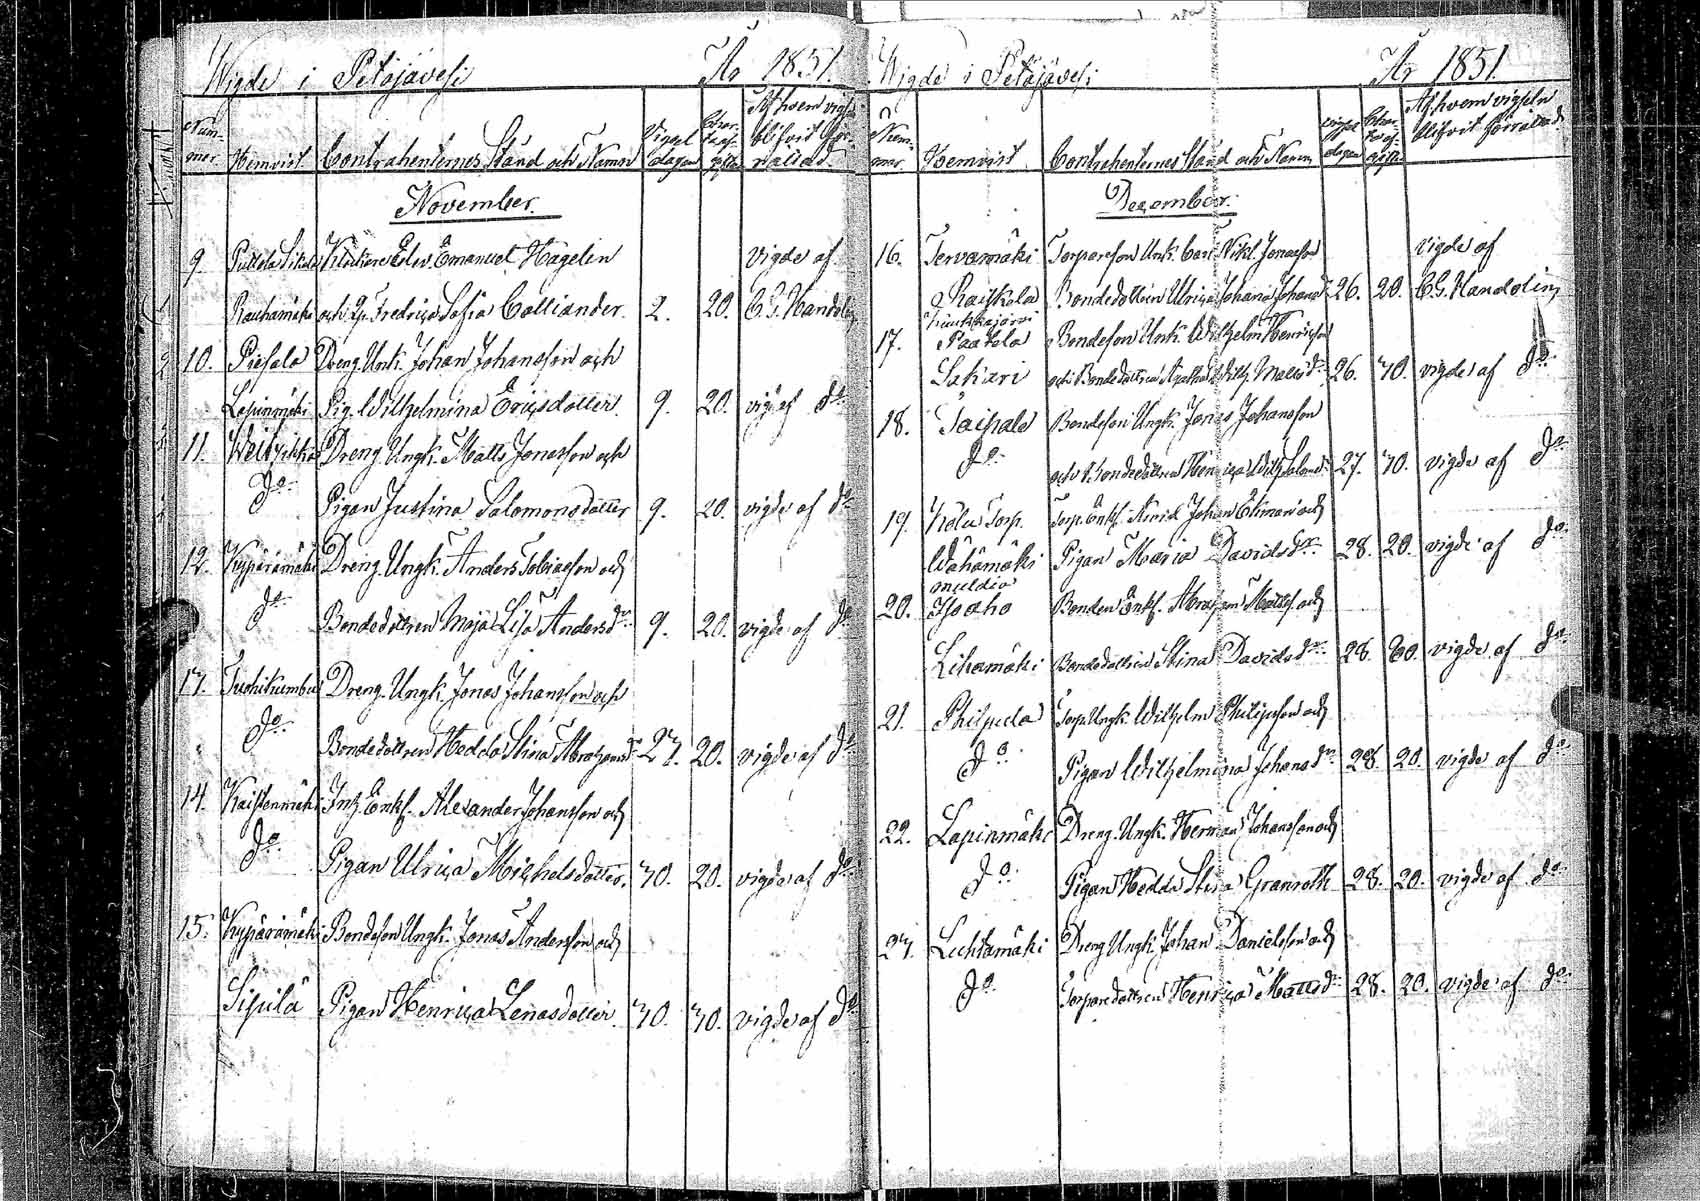 Wigde i Petäjävesi År 1851.
Num-mer Hemvist Contrahenternes Stånd och Namn Vigsel dagen Char-tæ af-giften Af hvem vigseln blifvit för-rättad.
November.
9. Klockare Edw. Emanuel Hägelin vigde af
Rauhamäki och Fredrica Sofia Calliander. 2. 20. C.G. Handolin
10. Piesala Dreng. Unk. Johan Johansson och
Lapinmäki Pig. Wilhelmina Ericsdotter. 9. 20. vig af do
11. Dreng Ungk. Matts Jonasson och
do Pigan Justina Salomonsdotter 9. 20. vigde af do
12. Kypärämäki Dreng. Ungk. Anders Tobiasson och
do Bondedottren Maja Lisa Andersdr. 9. 20. vigde af do
13. Dreng. Ungk. Jonas Johansson och
do Bondedottren Hedda Stina 23. 20. vigde af do
14. Enkl. Alexander Johansson och
do Pigan Ulrica Michelsdotter. 30. 20. vigde af do
15. Kypärämäki Bondeson Ungk. Jonas Andersson och
Sipilä Pigan Henrica Lenasdotter. 30. 30. vigde af do
Wigde i Petäjävesi År 1851.
Num-mer Hemvist Contrahenternes Stånd och Namn Vigsel dagen Char-tæ af-giften Af hvem vigseln blifvit förrättad
December.
16. Tervamäki Torpareson Unk. Carl Nikl. Jonasson vigde af
Raiskola Bondedottren Ulrica Johana 26. 20. C.G. Handolin
Kuukkajärvi
17. Paatela Bondeson Unk. Wilhelm Henricsson
Sakari och Bondedottren Agatha Wilh. Mattsdr 26. 30. vigde af do
18. Taipale Bondeson Ungk. Jonas Johansson
do och Bondedottren Henrica Wilh. 27. 30. vigde af do
19. Torp. Torp. Enkl. Johan och
Wähämäki Pigan Maria Davidsdr. 28. 20. vigde af do
muldia
20. Isoaho Bonden Enkl. Abraham Mattss. och
Lihamäki Bondedottren Stina Davidsdr. 28. 60. vigde af do
21. Philpula Torp. Ungk. Wilhelm Philipsson och
do Pigan Wilhelmina Johansdr. 28. 20. vigde af do
22. Lapinmäki Dreng. Ungk. Herman Johansson och
do Pigan Hedda Stina Granroth 28. 20. vigde af do
23. Lechtamäki Dreng Ungk. Johan Danielsson och
do Torparedottren Henrica Mattsdr 28. 20. vigde af do